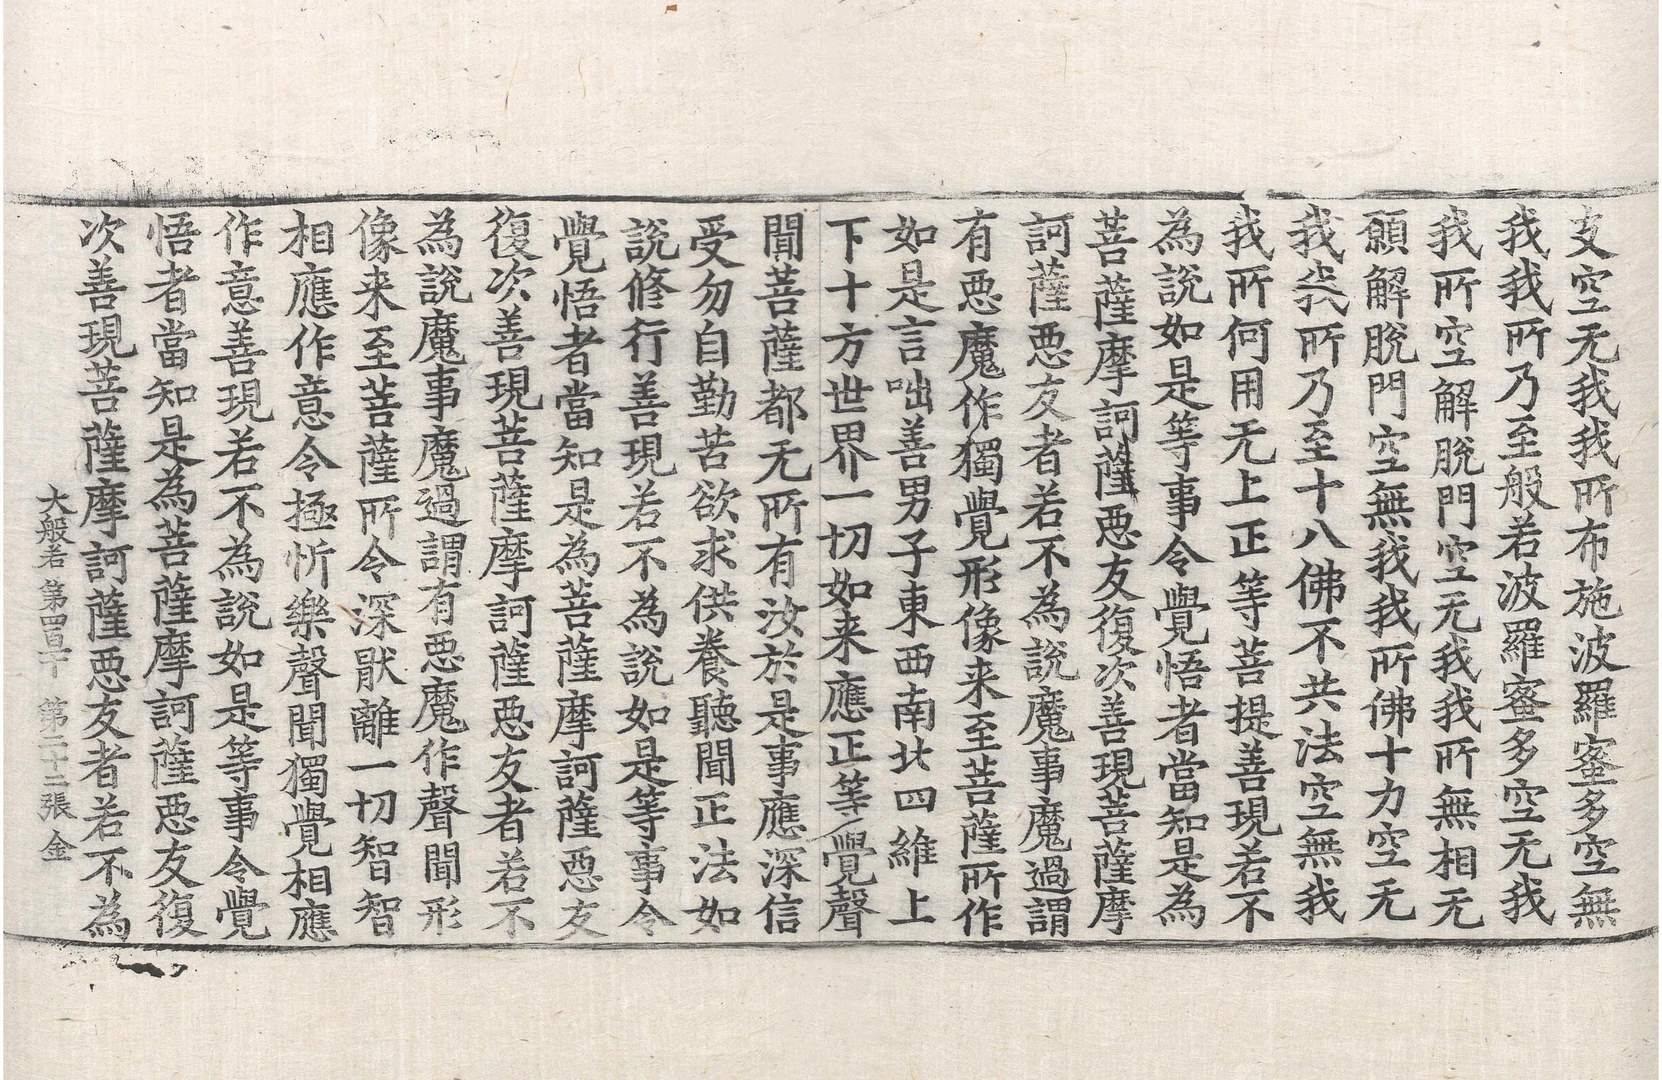 支空无我我所布施波羅蜜多空無
我我所乃至般若波羅蜜多空无我
我所空解脫門空无我我所無相无
願解脫門空無我我所佛十力空无
我我所乃至十八佛不共法空無我
我所何用无上正等菩提善現若不
為說如是等事令覺悟者當知是為
菩薩摩訶薩惡友復次善現菩薩摩
訶薩惡友者若不為說魔事魔過謂
有惡魔作獨覺形像来至菩薩所作
如是言咄善男子東西南北四維上
下十方世界一切如来應正等覺聲
聞菩薩都无所有汝於是事應深信
受勿自勤苦欲求供養聽聞正法如
說修行善現若不為說如是等事令
覺悟者當知是為菩薩摩訶薩惡友
復次善現菩薩摩訶薩惡友者若不
為說魔事魔過謂有惡魔作聲聞形
像来至菩薩所令深猒離一切智智
相應作意令極忻樂聲聞獨覺相應
作意善現若不為說如是等事令覺
悟者當知是為菩薩摩訶薩惡友復
次善現菩薩摩訶薩惡友者若不為
大般若 第四百十 第二十二張 金